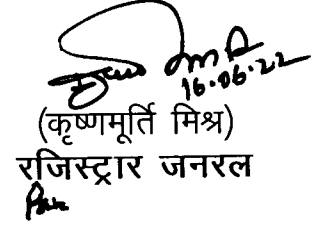 16.06.22
(कृष्णमूर्ति मिश्र)
रजिस्ट्रार जनरल